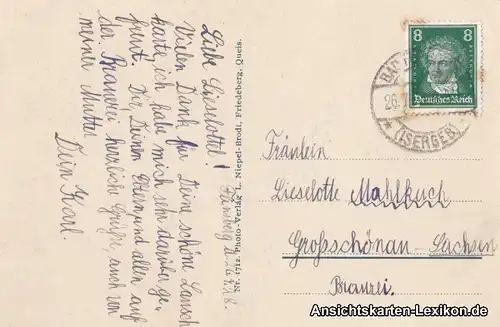 Liebe Lieselotte!
Vielen Dank für Deine schöne Lausch
karte, ich habe mich sehr darüber ge-
freut. Dir Deinen Eltern und allen auf
der Brauerei herzliche Grüße, auch von
meiner Mutter
Dein Karl.
Flinsberg
Photo-Verlag L. Niepel-Brodt, Friedeberg, Queis.
8 8
Deutsches Reich
BAD
26.
(ISERGEB.)
Fräulein
Lieselotte Mahlbuch
Großschönau-Sachsen
Brauerei.
Ansichtskarten-Lexikon.de